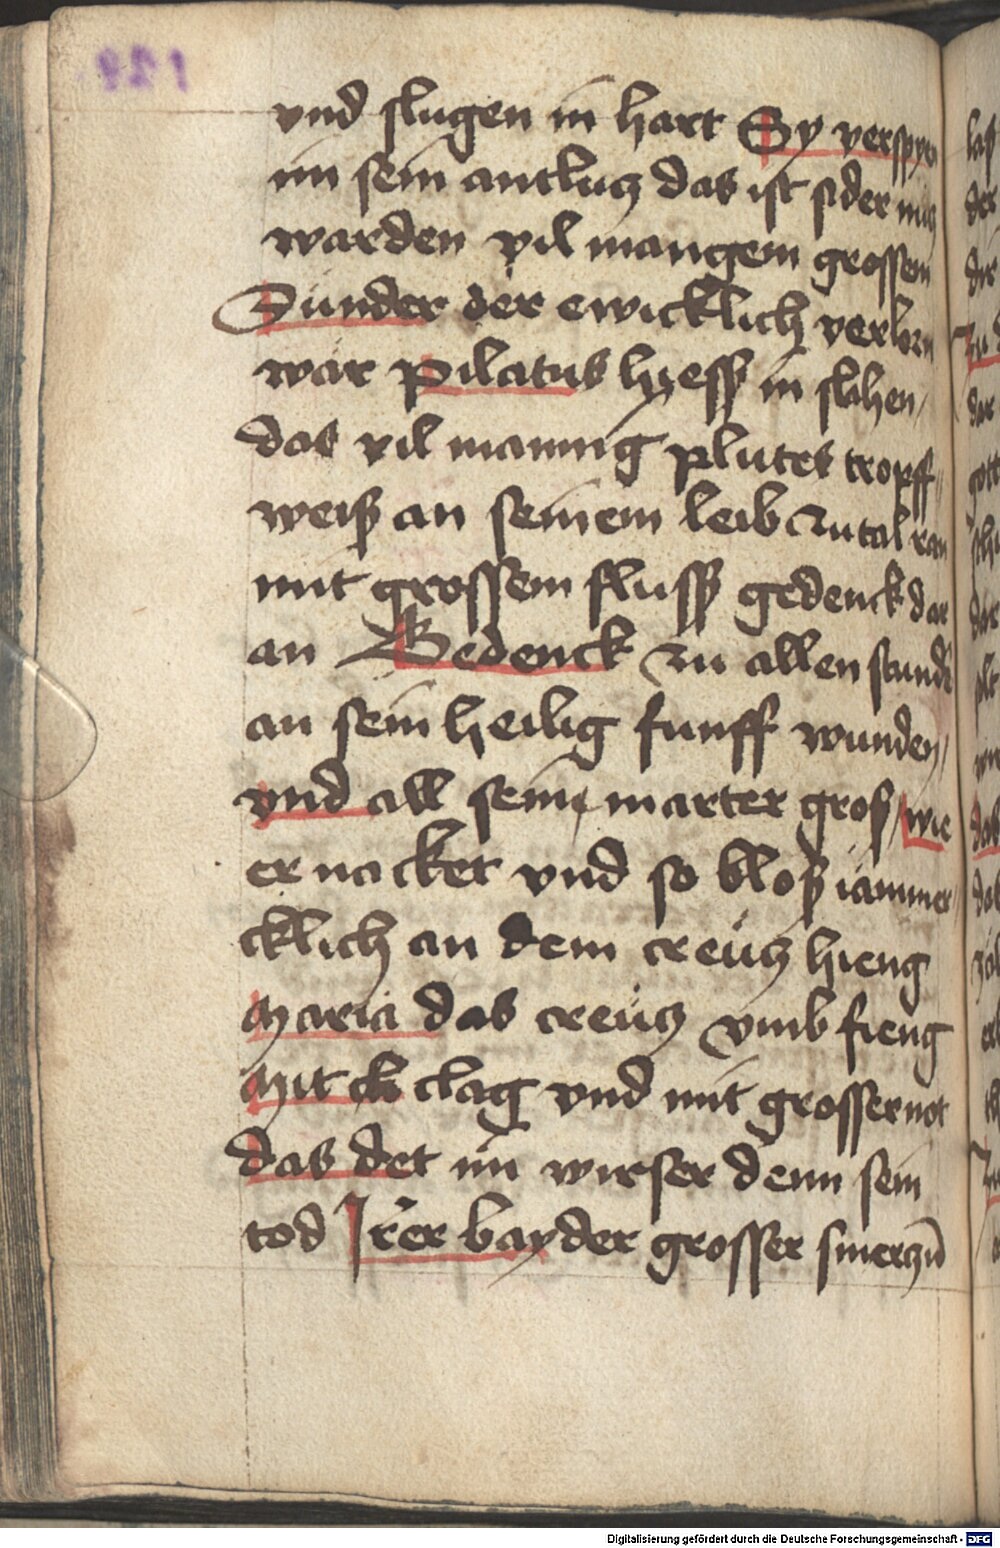 vnd slugen in hart Sy verspyen
im sein antlucz das ist sider nücz
warden vil mangem grossem
Sünder der ewicklich verlorn
wär pilatus hyess in slahen /
das vil mannig plutes tropff
weiß an seinem leib zutal ran
mit grossem fluss gedenck dar
an Gedenck zu allen stund
an sein heilig funff wunden /
vnd all sein marter groß / wie
er nacket vnd so bloß iammer
cklich an dem creücz hieng
Maria das creücz vmb fieng
Mit ck clag vnd mit grosser not
das det im wirser denn sein
tod Irer bayder grosser smerczn̄
Digitalisierung gefördert durch die Deutsche Forschungsgemeinschaft - DFG